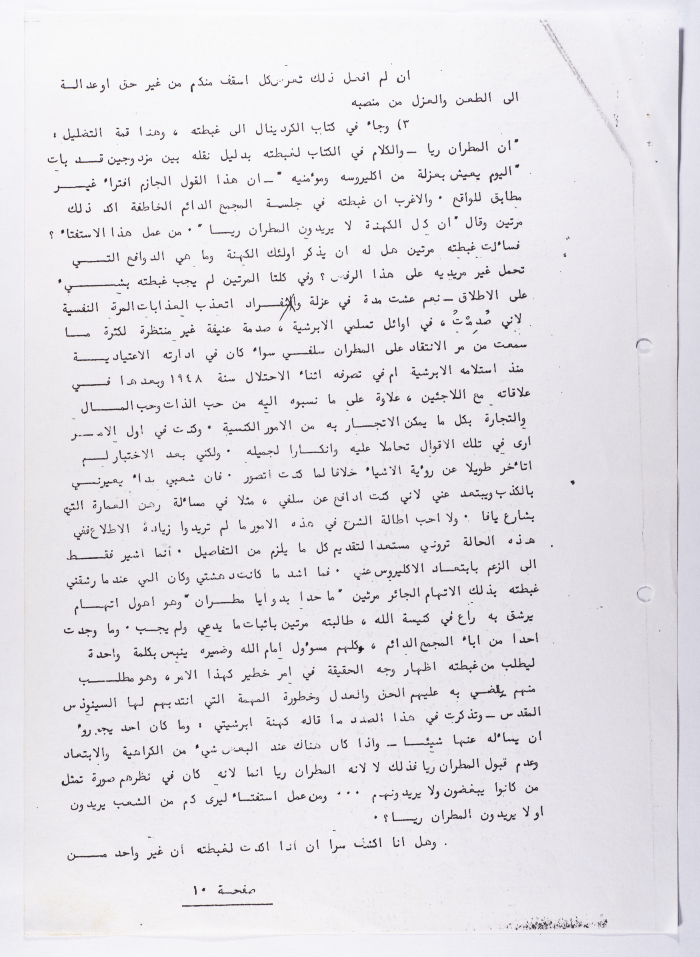 ان لم افعل ذلك تعرض كل اسقف منكم من غير حق او عدالة
الى الطعن والعزل من منصبه
٣) وجاء في كتاب الكردينال الى غبطته ، وهذا قمة التضليل :
"ان المطران ريا — والكلام في الكتاب لغبطته بدليل نقله بين مزدوجين قد بات
"اليوم يعيش بعزلة من اكليروسه ومؤمنيه" — ان هذا القول الجازم افتراء غير
مطابق للواقع . والاغرب ان غبطته في جلسة المجمع الدائم الخاطفة اكد ذلك
مرتين وقال "ان كل الكهنة لا يريدون المطران ريا" . من عمل هذا الاستفتاء ؟
فسألت غبطته مرتين هل له ان يذكر اولئك الكهنة وما هي الدوافع التي
تحمل غير مريديه على هذا الرفض ؟ وفي كلتا المرتين لم يجب غبطته بشيء
على الاطلاق — نعم عشت مدة في عزلة وانفراد اتعذب العذابات المرة النفسية
لاني صُدِمْتُ ، في اوائل تسلمي الابرشية ، صدمة عنيفة غير منتظرة لكثرة ما
سمعت من مر الانتقاد على المطران سلفي سواء كان في ادارته الاعتيادية
منذ استلامه الابرشية ام في تصرفه اثناء الاحتلال سنة ١٩٤٨ وبعدها في
علاقاته مع اللاجئين ، علاوة على ما نسبوه اليه من حب الذات وحب المال
والتجارة بكل ما يمكن الاتجار به من الامور الكنسية . وكنت في اول الامر
ارى في تلك الاقوال تحاملا عليه وانكارا لجميله . ولكني بعد الاختبار لم
اتأخر طويلا عن رؤية الاشياء خلافا لما كنت اتصور . فان شعبي بداء يعيرني
بالكذب ويبتعد عني لاني كنت ادافع عن سلفي ، مثلا في مسألة رهن العمارة التي
بشارع يافا . ولا احب اطالة الشرح في هذه الامور ما لم تريدوا زيادة الاطلاع ففي
هذه الحالة تروني مستعدا لتقديم كل ما يلزم من التفاصيل . انما اشير فقط
الى الزعم بابتعاد الاكليروس عني . فما اشد ما كانت دهشتي وكان المي عندما رشقني
غبطته بذلك الاتهام الجائر مرتين "ما حدا بدو ايا مطران" وهو اهول اتهام
يرشق به راع في كنيسة الله ، طالبته مرتين باثبات ما يدعي ولم يجب . وما وجدت
احدا من اباء المجمع الدائم ، وكلهم مسؤول امام الله وضميره ينبس بكلمة واحدة
ليطلب من غبطته اظهار وجه الحقيقة في امر خطير كهذا الامر ، وهو مطلب
منهم يقضي به عليهم الحق والعدل وخطورة المهمة التي انتدبهم لها السينوذس
المقدس — وتذكرت في هذا الصدد ما قاله كهنة ابرشيتي : وما كان احد يجروء
ان يسأله عنها شيئا — واذا كان هناك عند البعض شيء من الكراهية والابتعاد
وعدم قبول المطران ريا فذلك لا لانه المطران ريا انما لانه كان في نظرهم صورة تمثل
من كانوا يبغضون ولا يريدونهم ... ومن عمل استفتاء ليرى كم من الشعب يريدون
او لا يريدون المطران ريا ؟ .
. وهل انا اكشف سرا ان انا اكدت لغبطته ان غير واحد من
صفحة ١٠